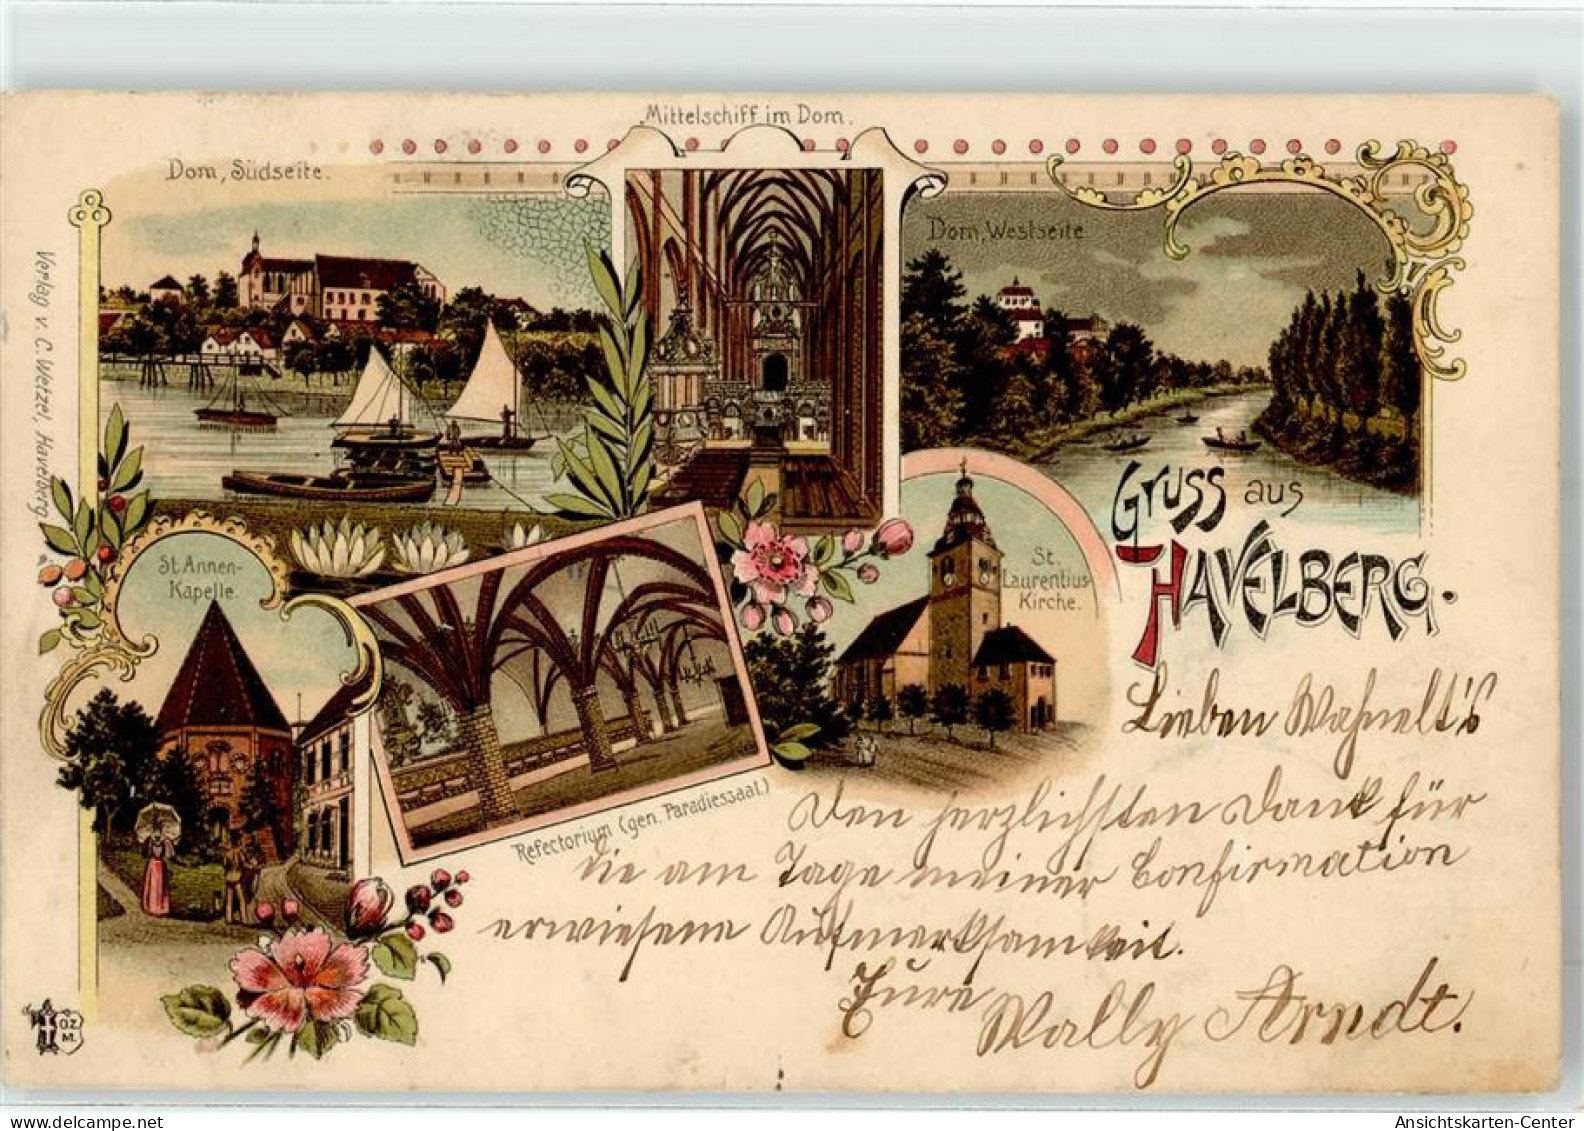 Mittelschiff im Dom.
Dom, Südseite.
Dom, Westseite
Verlag v. C. Wetzel, Havelberg
Gruss aus
Havelberg.
St. Annen-
Kapelle.
St.
Laurentius-
Kirche.
Refectorium (gen. Paradiessaal.)
Lieben Wahnelt's
Den herzlichsten Dank für
die am Tage meiner Confirmation
erwiesene Aufmerksamkeit.
Eure
Wally Arndt.
O.Z.
M.
Ansichtskarten-Center